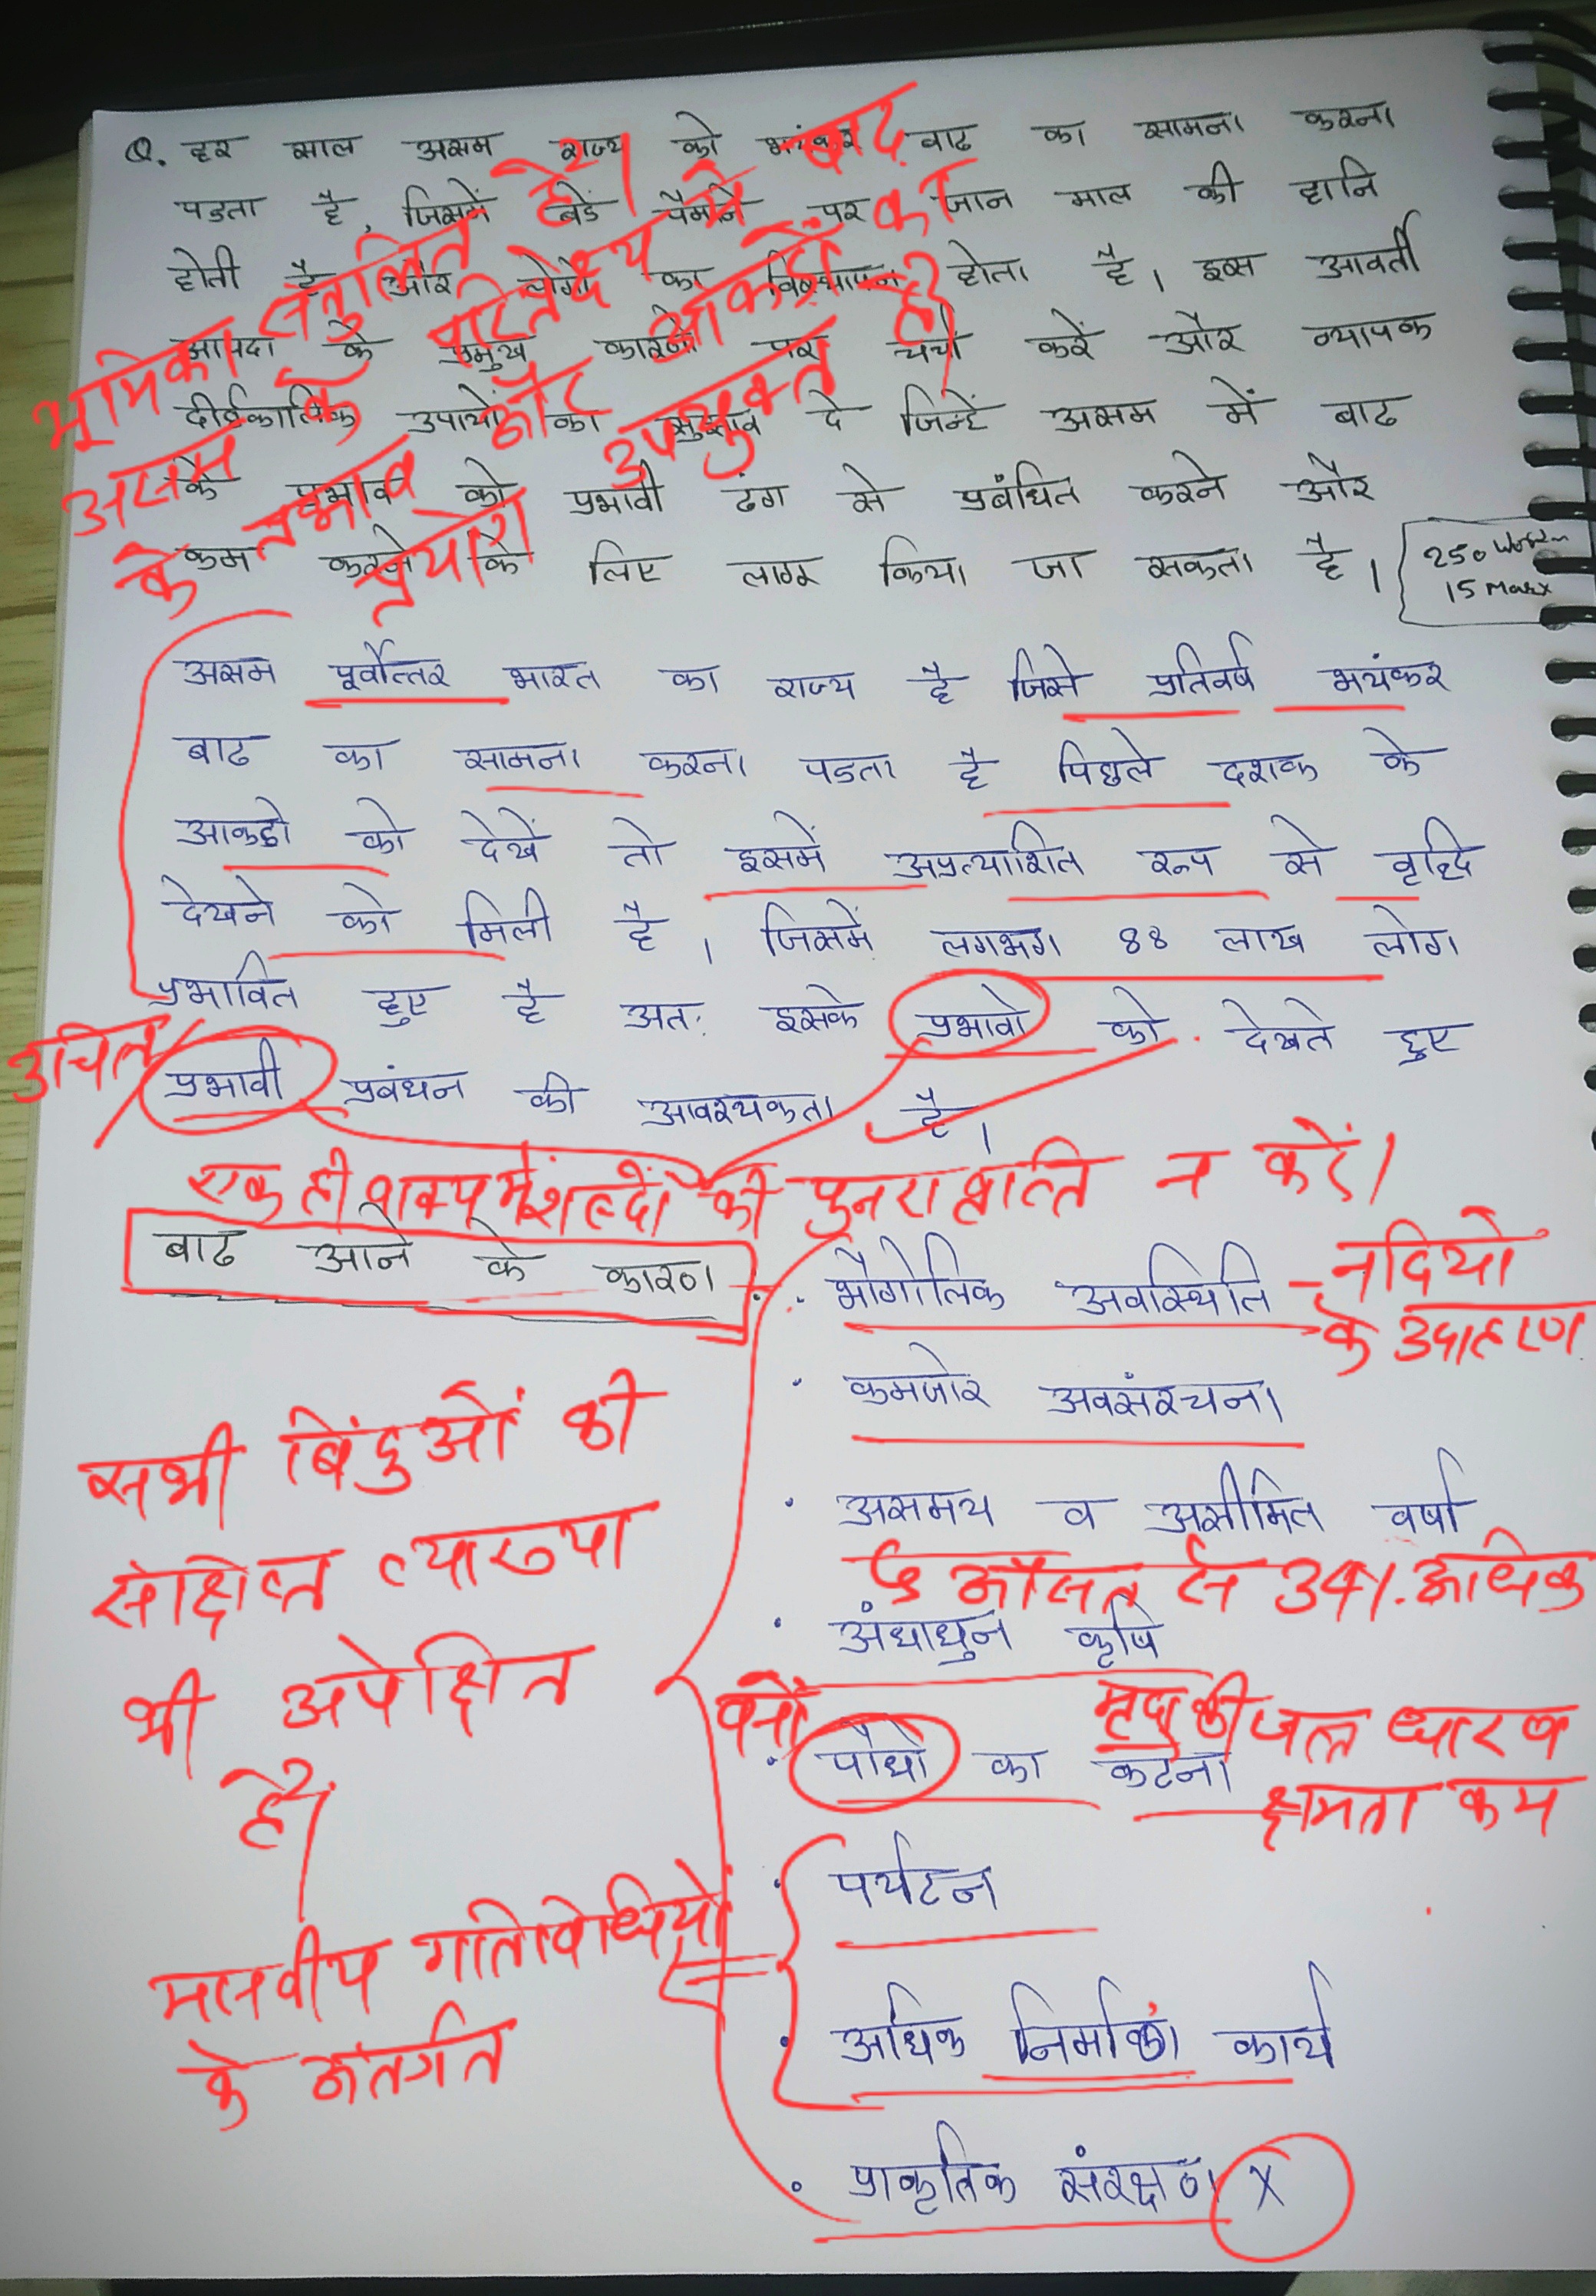 Q. हर साल असम राज्य को भयंकर बाढ का सामना करना
पडता है, जिसमें बडे पैमाने पर जान माल की हानि
होती है और लोगों का विस्थापन होता है। इस आवर्ती
आपदा के प्रमुख कारणों पर चर्चा करें और व्यापक
दीर्घकालिक उपायों का सुझाव दे जिन्हें असम में बाढ
के प्रभाव को प्रभावी ढंग से प्रबंधित करने और
कम करने के लिए लागू किया जा सकता है।
250 Words
15 Marx
भूमिका संतुलित है।
असम के परिप्रेक्ष्य में बाढ़
के प्रभाव और आंकड़ों का
प्रयोग उपयुक्त है।
असम पूर्वोत्तर भारत का राज्य है जिसे प्रतिवर्ष भयंकर
बाढ का सामना करना पडता है पिछले दशक के
आकडो को देखें तो इसमें अप्रत्याशित रूप से वृद्धि
देखने को मिली है, जिसमें लगभग 88 लाख लोग
प्रभावित हुए है अतः इसके प्रभावो को देखते हुए
उचित
प्रभावी प्रबंधन की आवश्यकता है।
एक ही वाक्य में शब्दों की पुनरावृत्ति न करें।
बाढ आने के कारण
· भौगोलिक अवस्थिति - नदियों
के उदाहरण
· कमजोर अवसंरचना
सभी बिंदुओं की
संक्षिप्त व्याख्या
भी अपेक्षित
है।
· असमय व असीमित वर्षा
औसत से 34%. अधिक
· अंधाधुन कृषि
वनों
· पौधो का कटना
मृदा की जल धारण
क्षमता कम
· पर्यटन
मानवीय गतिविधियों
के अंतर्गत
· अधिक निर्माण कार्य
· प्राकृतिक संरक्षण X